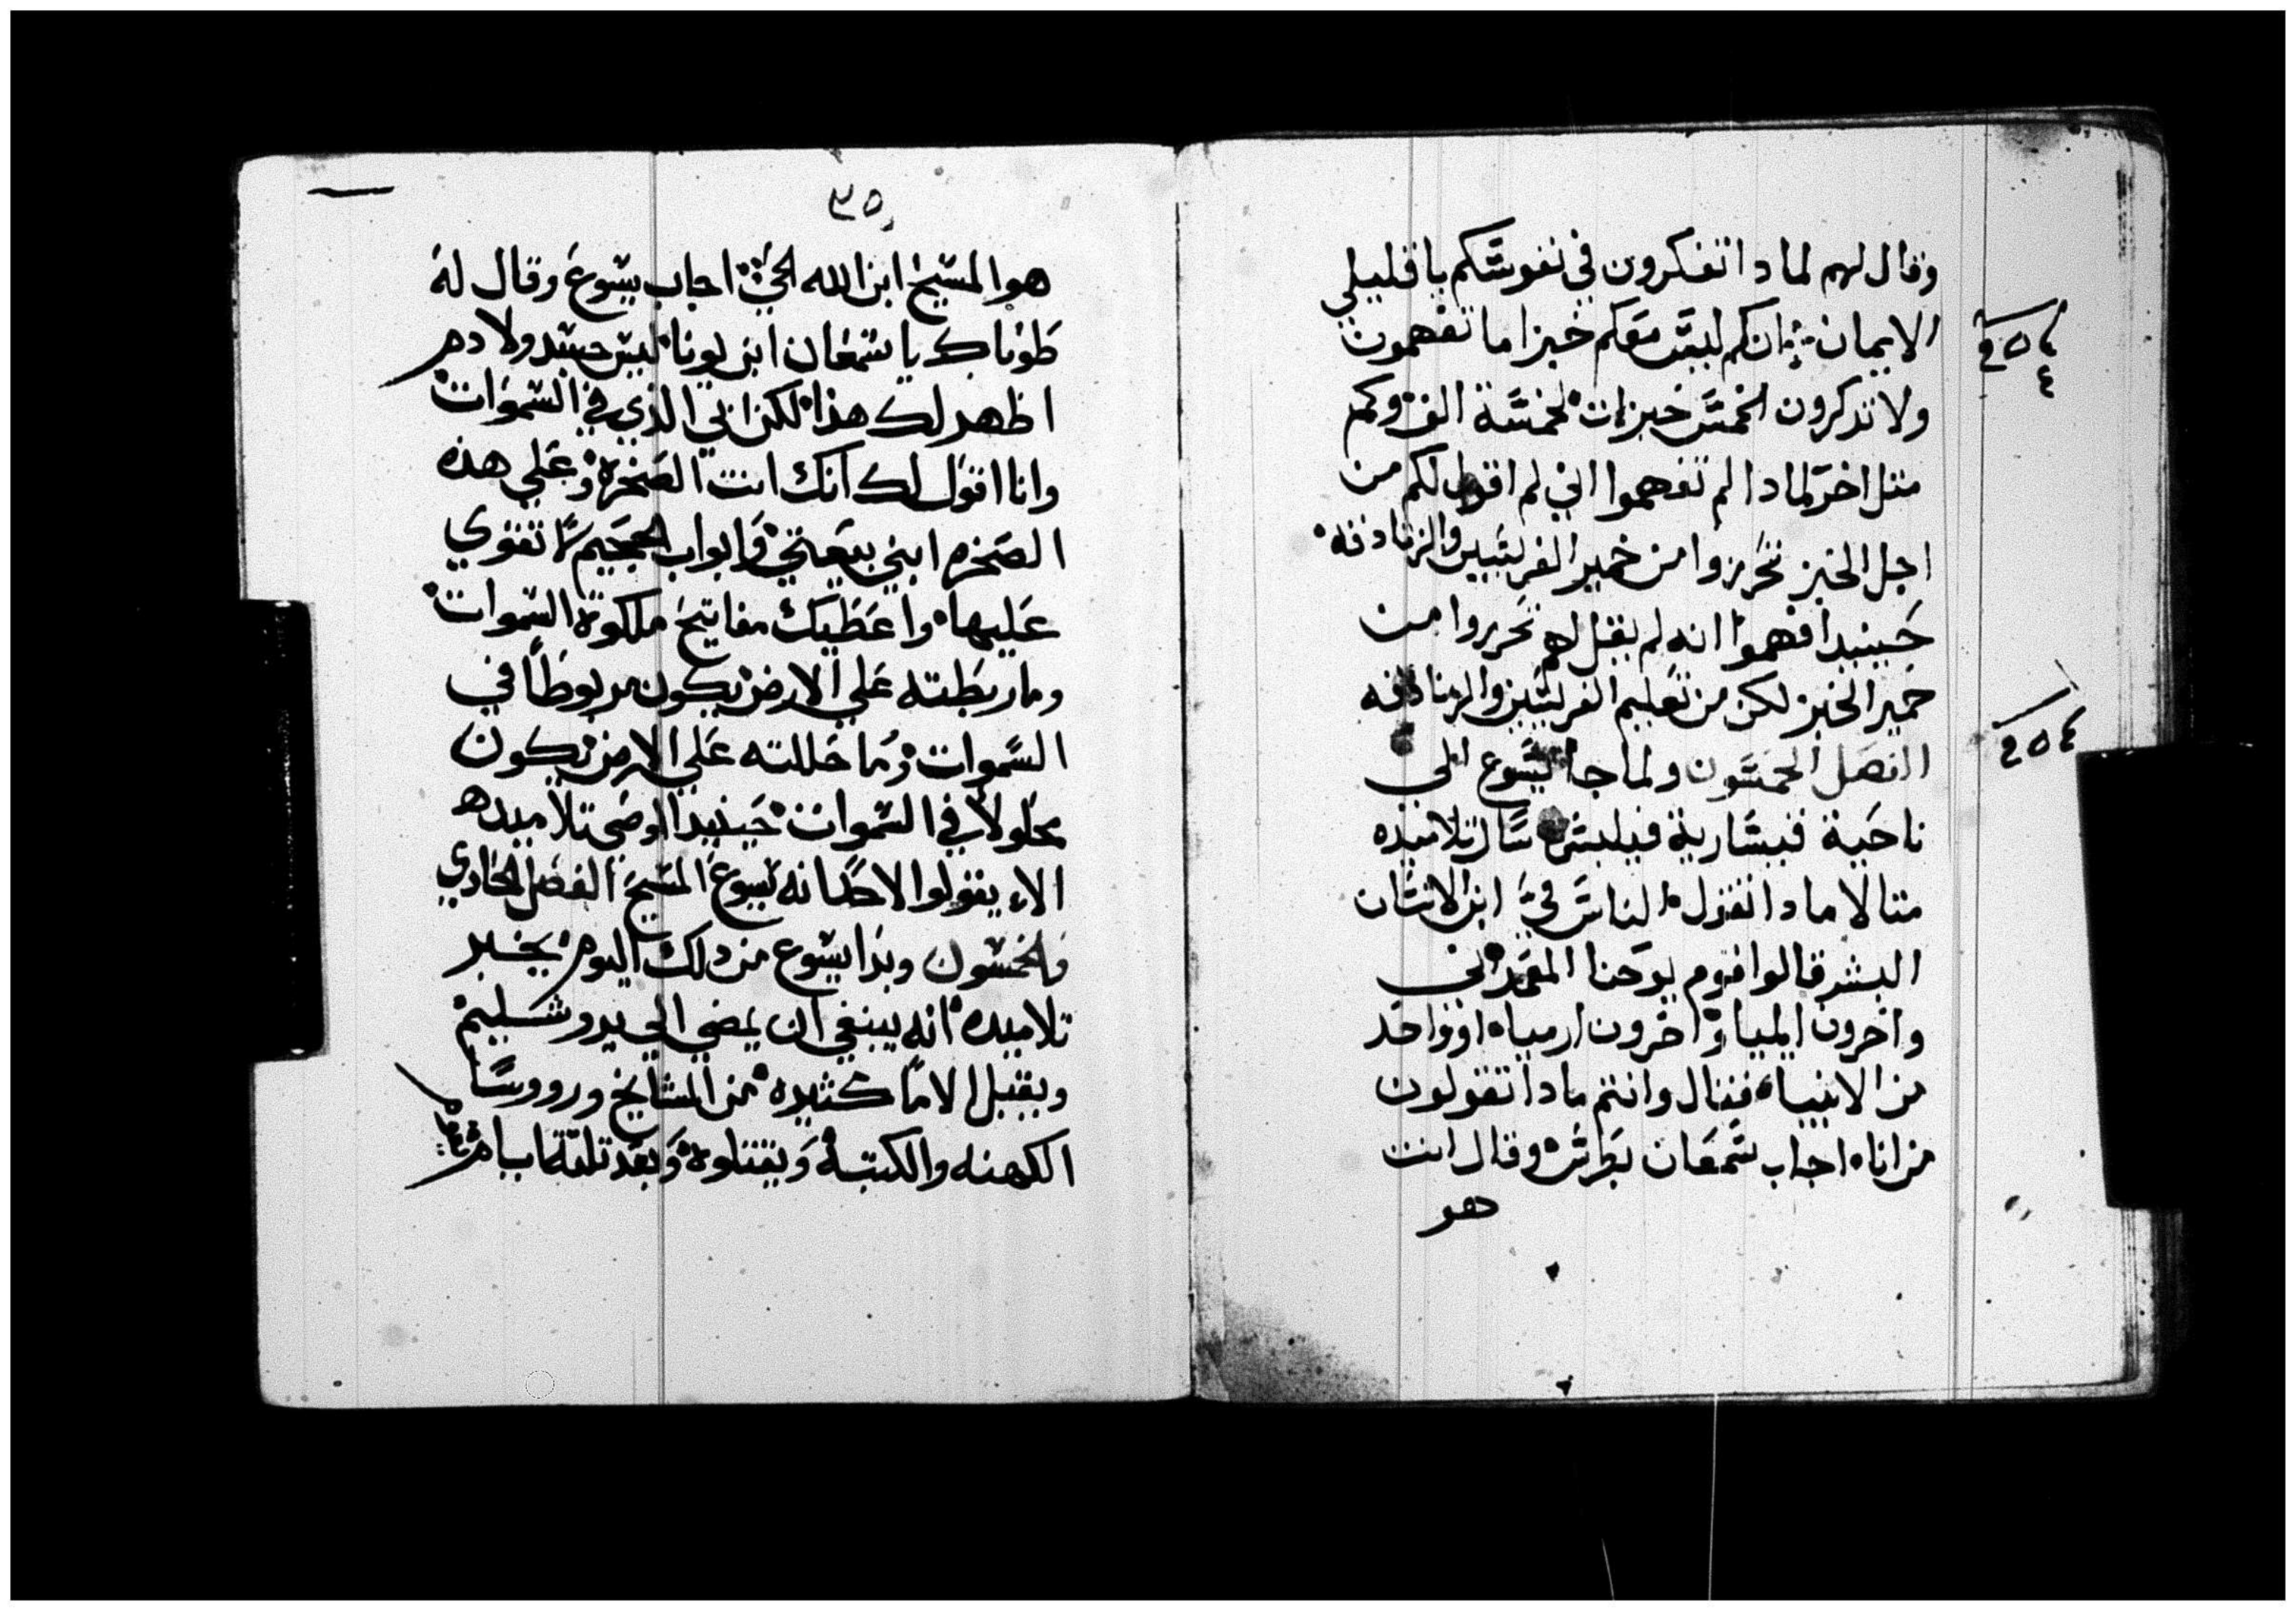 وقال لهم لمادا تفكرون في نفوسكم يا قليلي
الايمان انكم ليس معكم خبز اما تفهمون
ولا تدكرون الخمس خبزات لخمسة الف وكم
مثل اخر لمادا لم تفهموا اني لم اقول لكم من
اجل الخبز تحرزوا من خمير الفريسيين والزنادقه
حينيدا فهموا انه لم يقل لهم تحرزوا من
خمير الخبز لكن من تعليم الفريسيين والزنادقه
الفصل الخمسون ولما جا يسوع الي
ناحية قيسارية فيلبس سال تلاميده
قايلا مادا تقول الناس فيَّ ابن الانسان
البشر قالوا قوم يوحنا المعمداني
واخرون ايليا واخرون ارميا او واحد
من الانبيا فقال وانتم مادا تقولون
من انا اجاب سمعان بطرس وقال انت
هو
٣٥
هوا المسيح ابن الله الحي اجاب يسوع وقال له
طوباك يا سمعان ابن يونا ليس جسد ولا دم
اظهر لك هذا لكن ابي الذي في السموات
وانا اقول لك انك انت الصخره وعلي هذه
الصخره ابني بيعتي وابواب الجحيم لا تقوي
عليها واعطيك مفاتيح ملكوة السموات
وما ربطته علي الارض يكون مربوطاً في
السموات وما حللته علي الارض يكون
محلولاً في السموات حينيدا اوصى تلاميده
الا يقولوا لاحد انه يسوع المسيح الفصل الحادي
والخمسون وبدا يسوع من دلك اليوم يخبر
تلاميده انه ينبغي ان يمضي الي يروشليم
ويقبل الاماً كثيره من المشايخ وروساً
الكهنه والكتبة ويقتلوه وبعد تلتة ايام